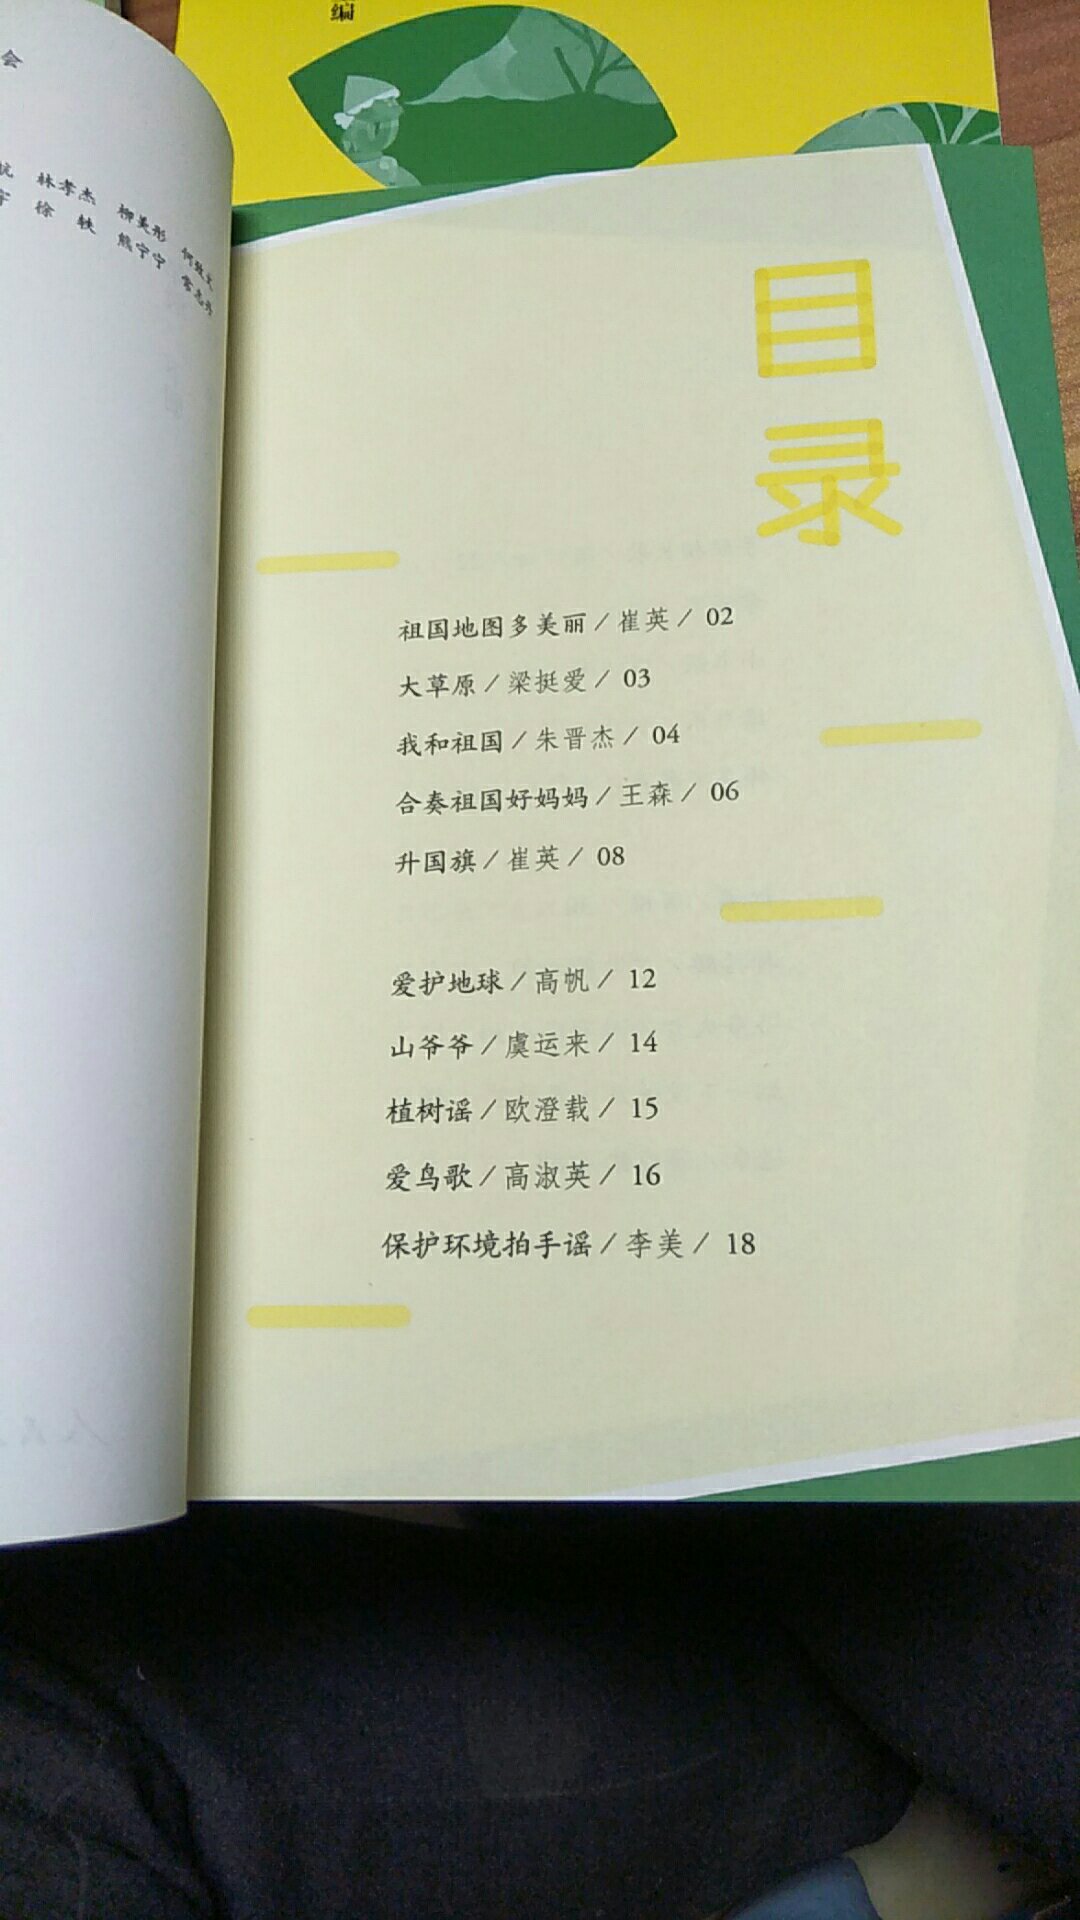 编
会
林孝杰 柳美彤
徐轶 熊宁宁
目录
祖国地图多美丽/崔英/ 02
大草原/梁挺爱/ 03
我和祖国/朱晋杰/ 04
合奏祖国好妈妈/王森/ 06
升国旗/崔英/ 08
爱护地球/高帆/ 12
山爷爷/虞运来/ 14
植树谣/欧澄载/ 15
爱鸟歌/高淑英/ 16
保护环境拍手谣/李美/ 18